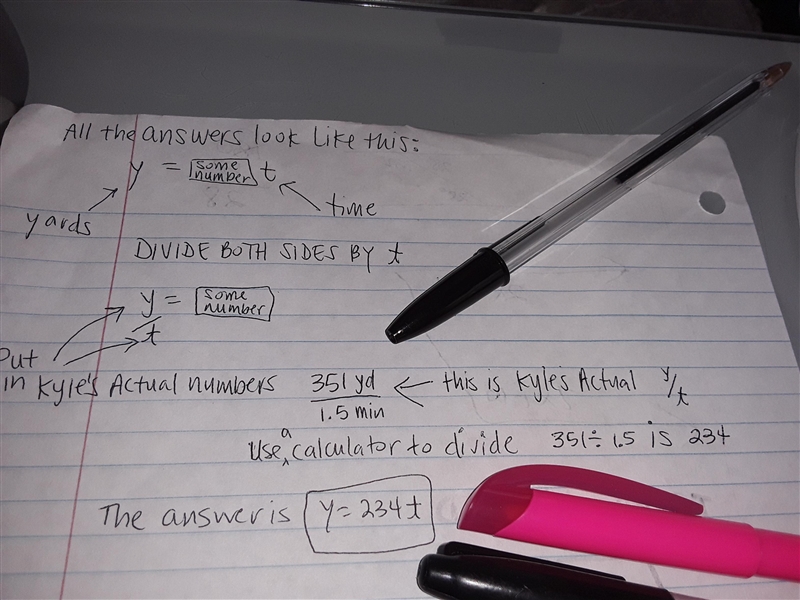 All the answers look like this:
y = some number t
yards
time
DIVIDE BOTH SIDES BY t
y/t = some number
Put in Kyle's Actual numbers 351 yd / 1.5 min ← this is Kyle's Actual y/t
Use a calculator to divide 351 ÷ 1.5 is 234
The answer is y = 234t